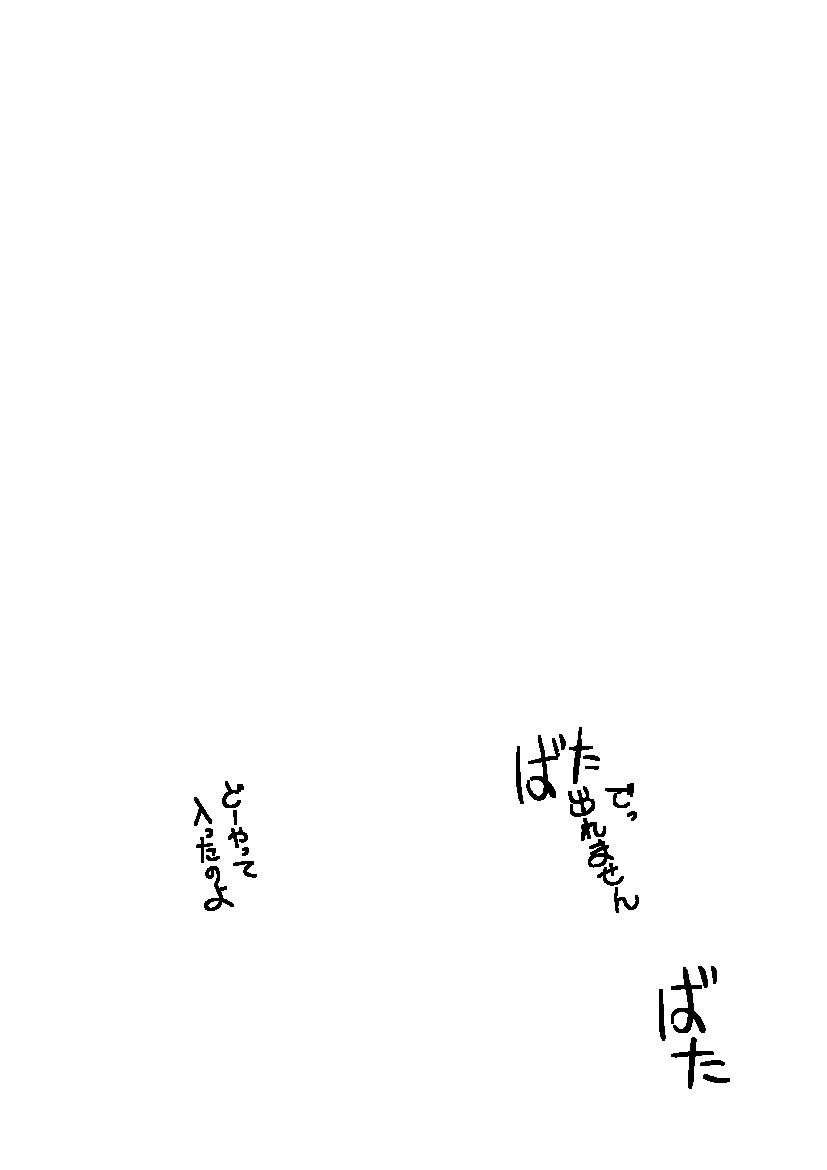 ばた
でっ
出れません
ばた
どーやって
入ったのよ